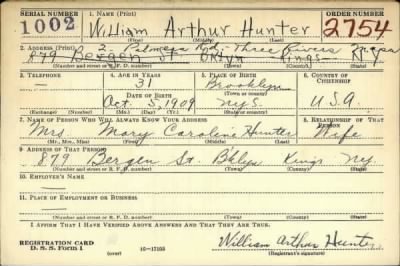 SERIAL NUMBER 1. NAME (Print) ORDER NUMBER
1002 William Arthur Hunter 2754
(First) (Middle) (Last)
2. ADDRESS (Print) 2 Palmer Rd. Three Rivers Mass
879 Bergen St Bklyn Kings N.Y.
(Number and street or R. F. D. number) (Town) (County) (State)
3. TELEPHONE 4. AGE IN YEARS 5. PLACE OF BIRTH 6. COUNTRY OF CITIZENSHIP
— 31 Brooklyn
DATE OF BIRTH (Town or county)
Oct. 5, 1909 N.Y.S. U.S.A.
(Exchange) (Number) (Mo.) (Day) (Yr.) (State or country)
7. NAME OF PERSON WHO WILL ALWAYS KNOW YOUR ADDRESS 8. RELATIONSHIP OF THAT PERSON
Mrs. Mary Caroline Hunter Wife
(Mr., Mrs., Miss) (First) (Middle) (Last)
9. ADDRESS OF THAT PERSON
879 Bergen St. Bklyn Kings Ny.
(Number and street or R. F. D. number) (Town) (County) (State)
10. EMPLOYER'S NAME
—
11. PLACE OF EMPLOYMENT OR BUSINESS
—
(Number and street or R. F. D. number) (Town) (County) (State)
I AFFIRM THAT I HAVE VERIFIED ABOVE ANSWERS AND THAT THEY ARE TRUE.
REGISTRATION CARD
D. S. S. Form 1 (over) 16—17105 William Arthur Hunter
(Registrant's signature)